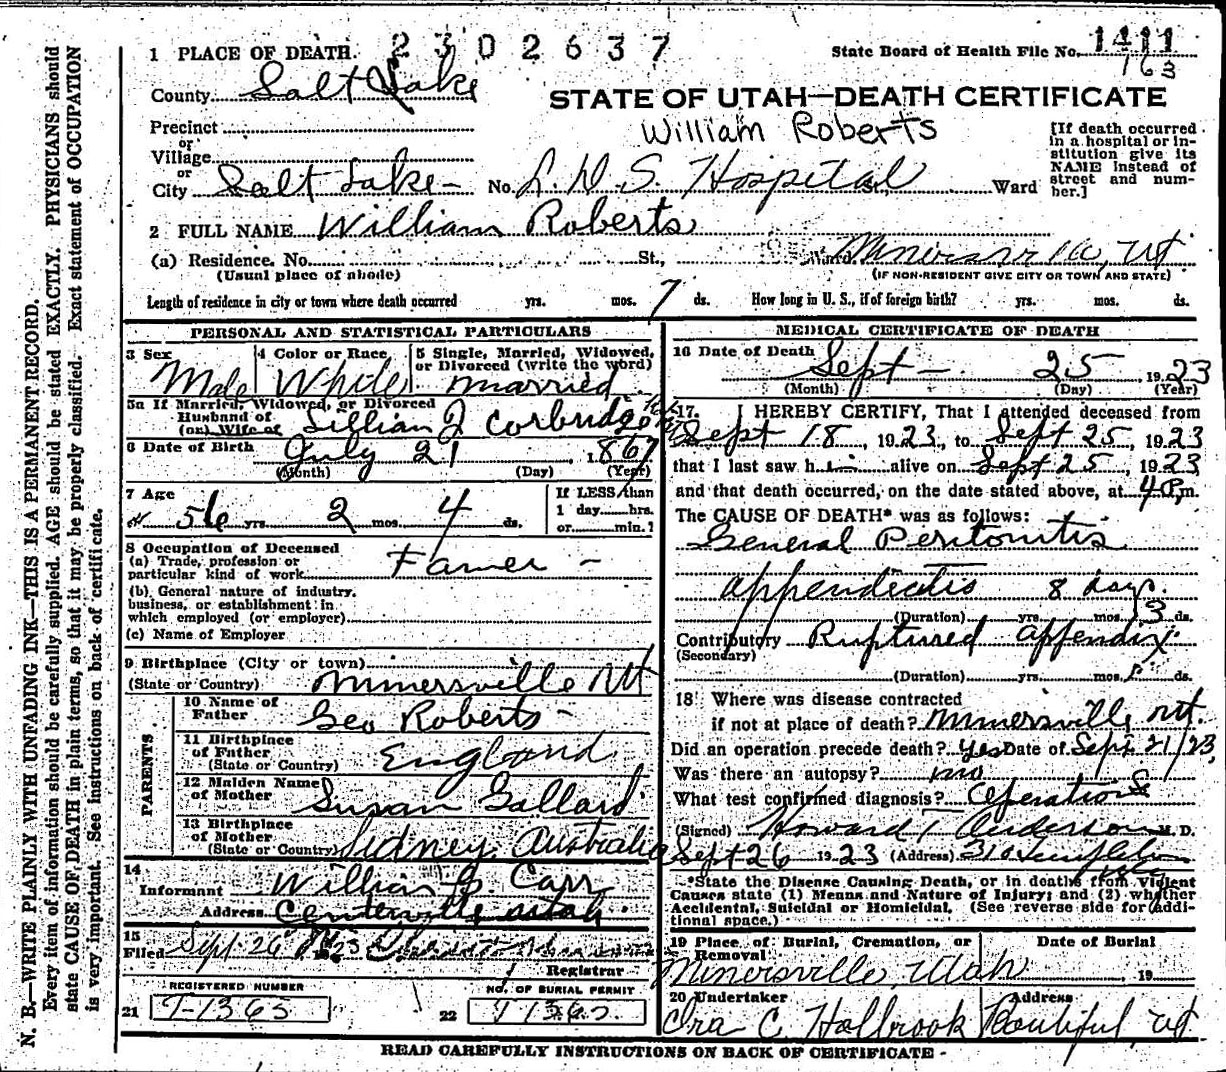 2302637
1 PLACE OF DEATH.
State Board of Health File No. 1411
163
County Salt Lake
STATE OF UTAH—DEATH CERTIFICATE
William Roberts
Precinct
or
Village
or
City Salt Lake - No. L. D. S. Hospital Ward
[If death occurred in a hospital or institution give its NAME instead of street and number.]
2 FULL NAME William Roberts
(a) Residence. No. St., Minersville, Ut
(Usual place of abode) (IF NON-RESIDENT GIVE CITY OR TOWN AND STATE)
Length of residence in city or town where death occurred yrs. mos. 7 ds. How long in U. S., if of foreign birth? yrs. mos. ds.
PERSONAL AND STATISTICAL PARTICULARS
3 Sex Male
4 Color or Race White
5 Single, Married, Widowed, or Divorced (write the word) married
5a If Married, Widowed, or Divorced
Husband of
(or) Wife of Lillian J Corbridge
6 Date of Birth July 21 1867
(Month) (Day) (Year)
7 Age 56 yrs. 2 mos. 4 ds.
If LESS than
1 day hrs.
or min.?
8 Occupation of Deceased
(a) Trade, profession or
particular kind of work Famer -
(b) General nature of industry,
business, or establishment in
which employed (or employer)
(c) Name of Employer
9 Birthplace (City or town)
(State or Country) Minersville Ut
PARENTS
10 Name of Father Geo Roberts -
11 Birthplace of Father (State or Country) England
12 Maiden Name of Mother Susan Gallard
13 Birthplace of Mother (State or Country) Sidney, Australia
14
Informant William C. Carr
Address Centerville Utah.
15
Filed Sept 26 1923
Registrar
REGISTERED NUMBER NO. OF BURIAL PERMIT
21 T-1365 22 T 1365
MEDICAL CERTIFICATE OF DEATH
16 Date of Death Sept - 25, 1923
(Month) (Day) (Year)
17. I HEREBY CERTIFY, That I attended deceased from
Sept 18, 1923, to Sept 25, 1923
that I last saw him alive on Sept 25, 1923
and that death occurred, on the date stated above, at 4 P.m.
The CAUSE OF DEATH* was as follows:
General Peritonitis
appendicitis 8 days.
(Duration) yrs. mos. 3 ds.
Contributory Ruptured appendix
(Secondary)
(Duration) yrs. mos. ds.
18 Where was disease contracted
if not at place of death? Minersville Ut.
Did an operation precede death? Yes Date of Sept 21/23,
Was there an autopsy? no
What test confirmed diagnosis? Operation
(Signed) Howard T Anderson M. D.
Sept 26 1923 (Address) 310 Templeton
*State the Disease Causing Death, or in deaths from Violent
Causes state (1) Means and Nature of Injury; and (2) whether
Accidental, Suicidal or Homicidal. (See reverse side for additional space.)
19 Place of Burial, Cremation, or Removal Date of Burial
Minersville, Utah , 19
20 Undertaker Address
Ira C. Holbrook Bountiful, Ut
READ CAREFULLY INSTRUCTIONS ON BACK OF CERTIFICATE -
N. B.—WRITE PLAINLY WITH UNFADING INK—THIS IS A PERMANENT RECORD.
Every item of information should be carefully supplied. AGE should be stated EXACTLY. PHYSICIANS should
state CAUSE OF DEATH in plain terms, so that it may be properly classified. Exact statement of OCCUPATION
is very important. See instructions on back of certificate.